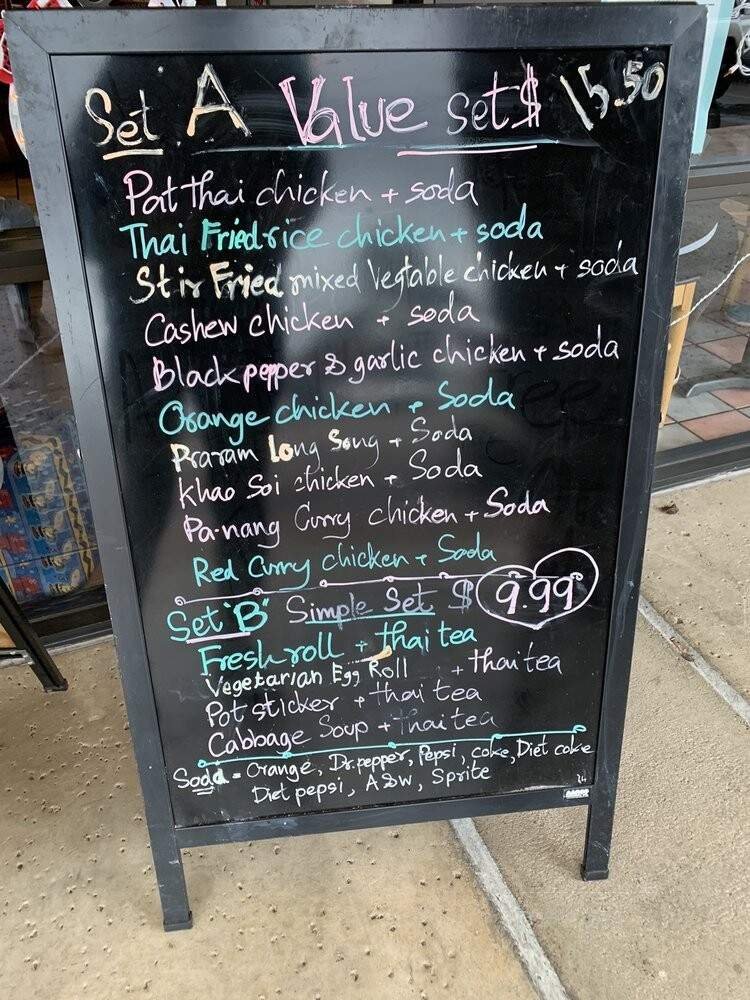 Set A Value Set $ 15.50
Pat thai chicken + soda
Thai Fried rice chicken + soda
Stir Fried mixed Vegtable chicken + soda
Cashew chicken + soda
Black pepper & garlic chicken + soda
Orange chicken + Soda
Praram Long Song + Soda
Khao Soi chicken + Soda
Pa-nang Curry chicken + Soda
Red Curry chicken + Soda
Set "B" Simple Set $ 9.99
Fresh roll + thai tea
Vegetarian Egg Roll + thai tea
Pot sticker + thai tea
Cabbage Soup + thai tea
Soda = Orange, Dr.pepper, Pepsi, coke, Diet coke
Diet pepsi, A&W, Sprite